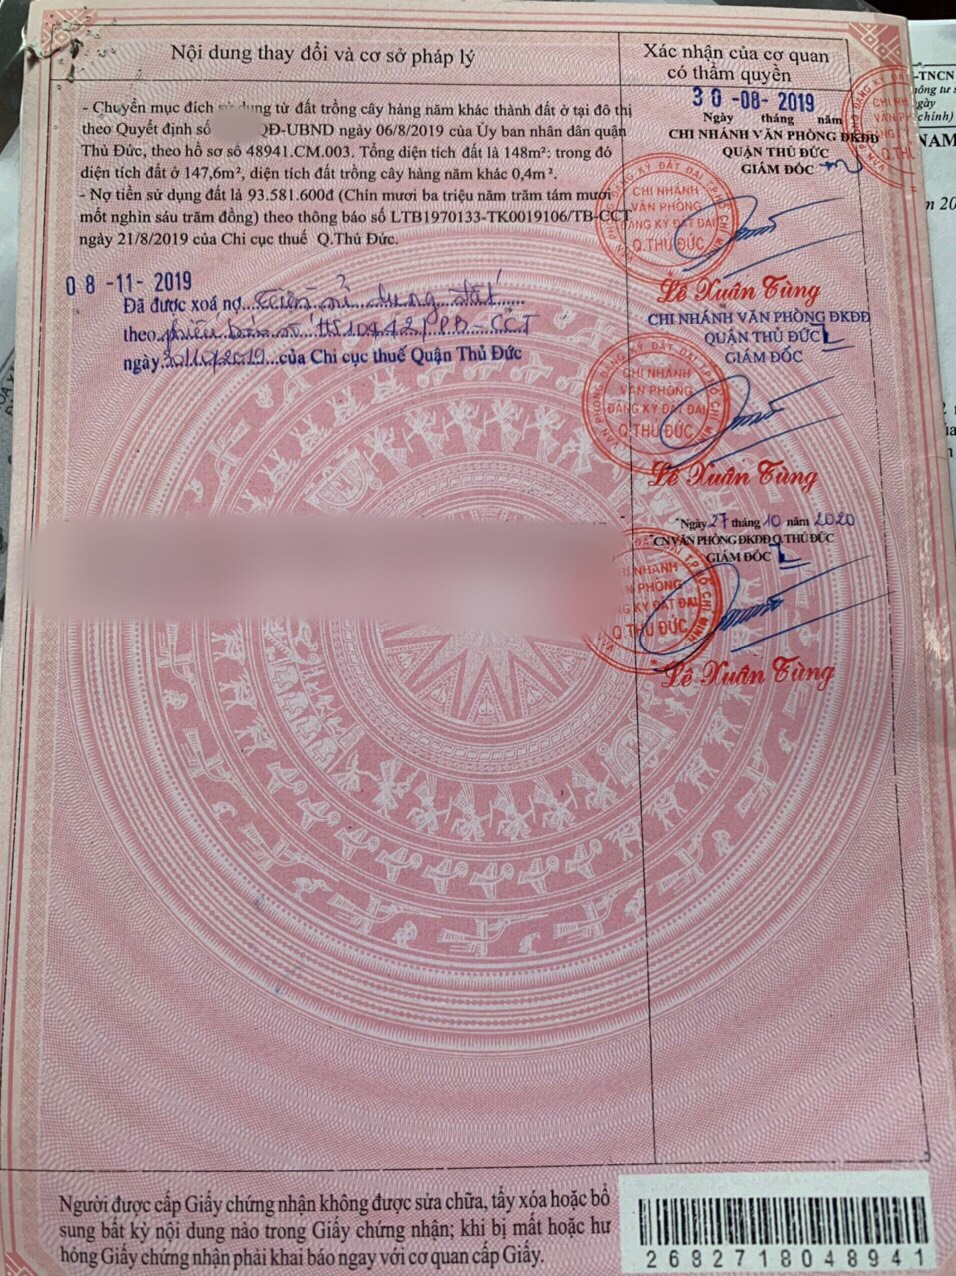 Nội dung thay đổi và cơ sở pháp lý
Xác nhận của cơ quan
có thẩm quyền
- Chuyển mục đích sử dụng từ đất trồng cây hàng năm khác thành đất ở tại đô thị
theo Quyết định số QĐ-UBND ngày 06/8/2019 của Ủy ban nhân dân quận
Thủ Đức, theo hồ sơ số 48941.CM.003. Tổng diện tích đất là 148m²: trong đó
diện tích đất ở 147,6m², diện tích đất trồng cây hàng năm khác 0,4m².
- Nợ tiền sử dụng đất là 93.581.600đ (Chín mươi ba triệu năm trăm tám mươi
mốt nghìn sáu trăm đồng) theo thông báo số LTB1970133-TK0019106/TB-CCT
ngày 21/8/2019 của Chi cục thuế Q.Thủ Đức.
30-08-2019
Ngày tháng năm
CHI NHÁNH VĂN PHÒNG ĐKĐĐ
QUẬN THỦ ĐỨC
GIÁM ĐỐC
CHI NHÁNH
VĂN PHÒNG
ĐĂNG KÝ ĐẤT ĐAI
Q.THỦ ĐỨC
Lê Xuân Tùng
08-11-2019
Đã được xoá nợ tiền sử dụng đất
theo
ngày 30/10/2019 của Chi cục thuế Quận Thủ Đức
CHI NHÁNH VĂN PHÒNG ĐKĐĐ
QUẬN THỦ ĐỨC
GIÁM ĐỐC
CHI NHÁNH
VĂN PHÒNG
ĐĂNG KÝ ĐẤT ĐAI
Q.THỦ ĐỨC
Lê Xuân Tùng
Ngày 27 tháng 10 năm 2020
CN VĂN PHÒNG ĐKĐĐ Q.THỦ ĐỨC
GIÁM ĐỐC
NHÁNH
PHÒNG
KÝ ĐẤT ĐAI
Q.THỦ ĐỨC
Lê Xuân Tùng
Người được cấp Giấy chứng nhận không được sửa chữa, tẩy xóa hoặc bổ
sung bất kỳ nội dung nào trong Giấy chứng nhận; khi bị mất hoặc hư
hỏng Giấy chứng nhận phải khai báo ngay với cơ quan cấp Giấy.
268271804 8941
-TNCN
chính)
NAM